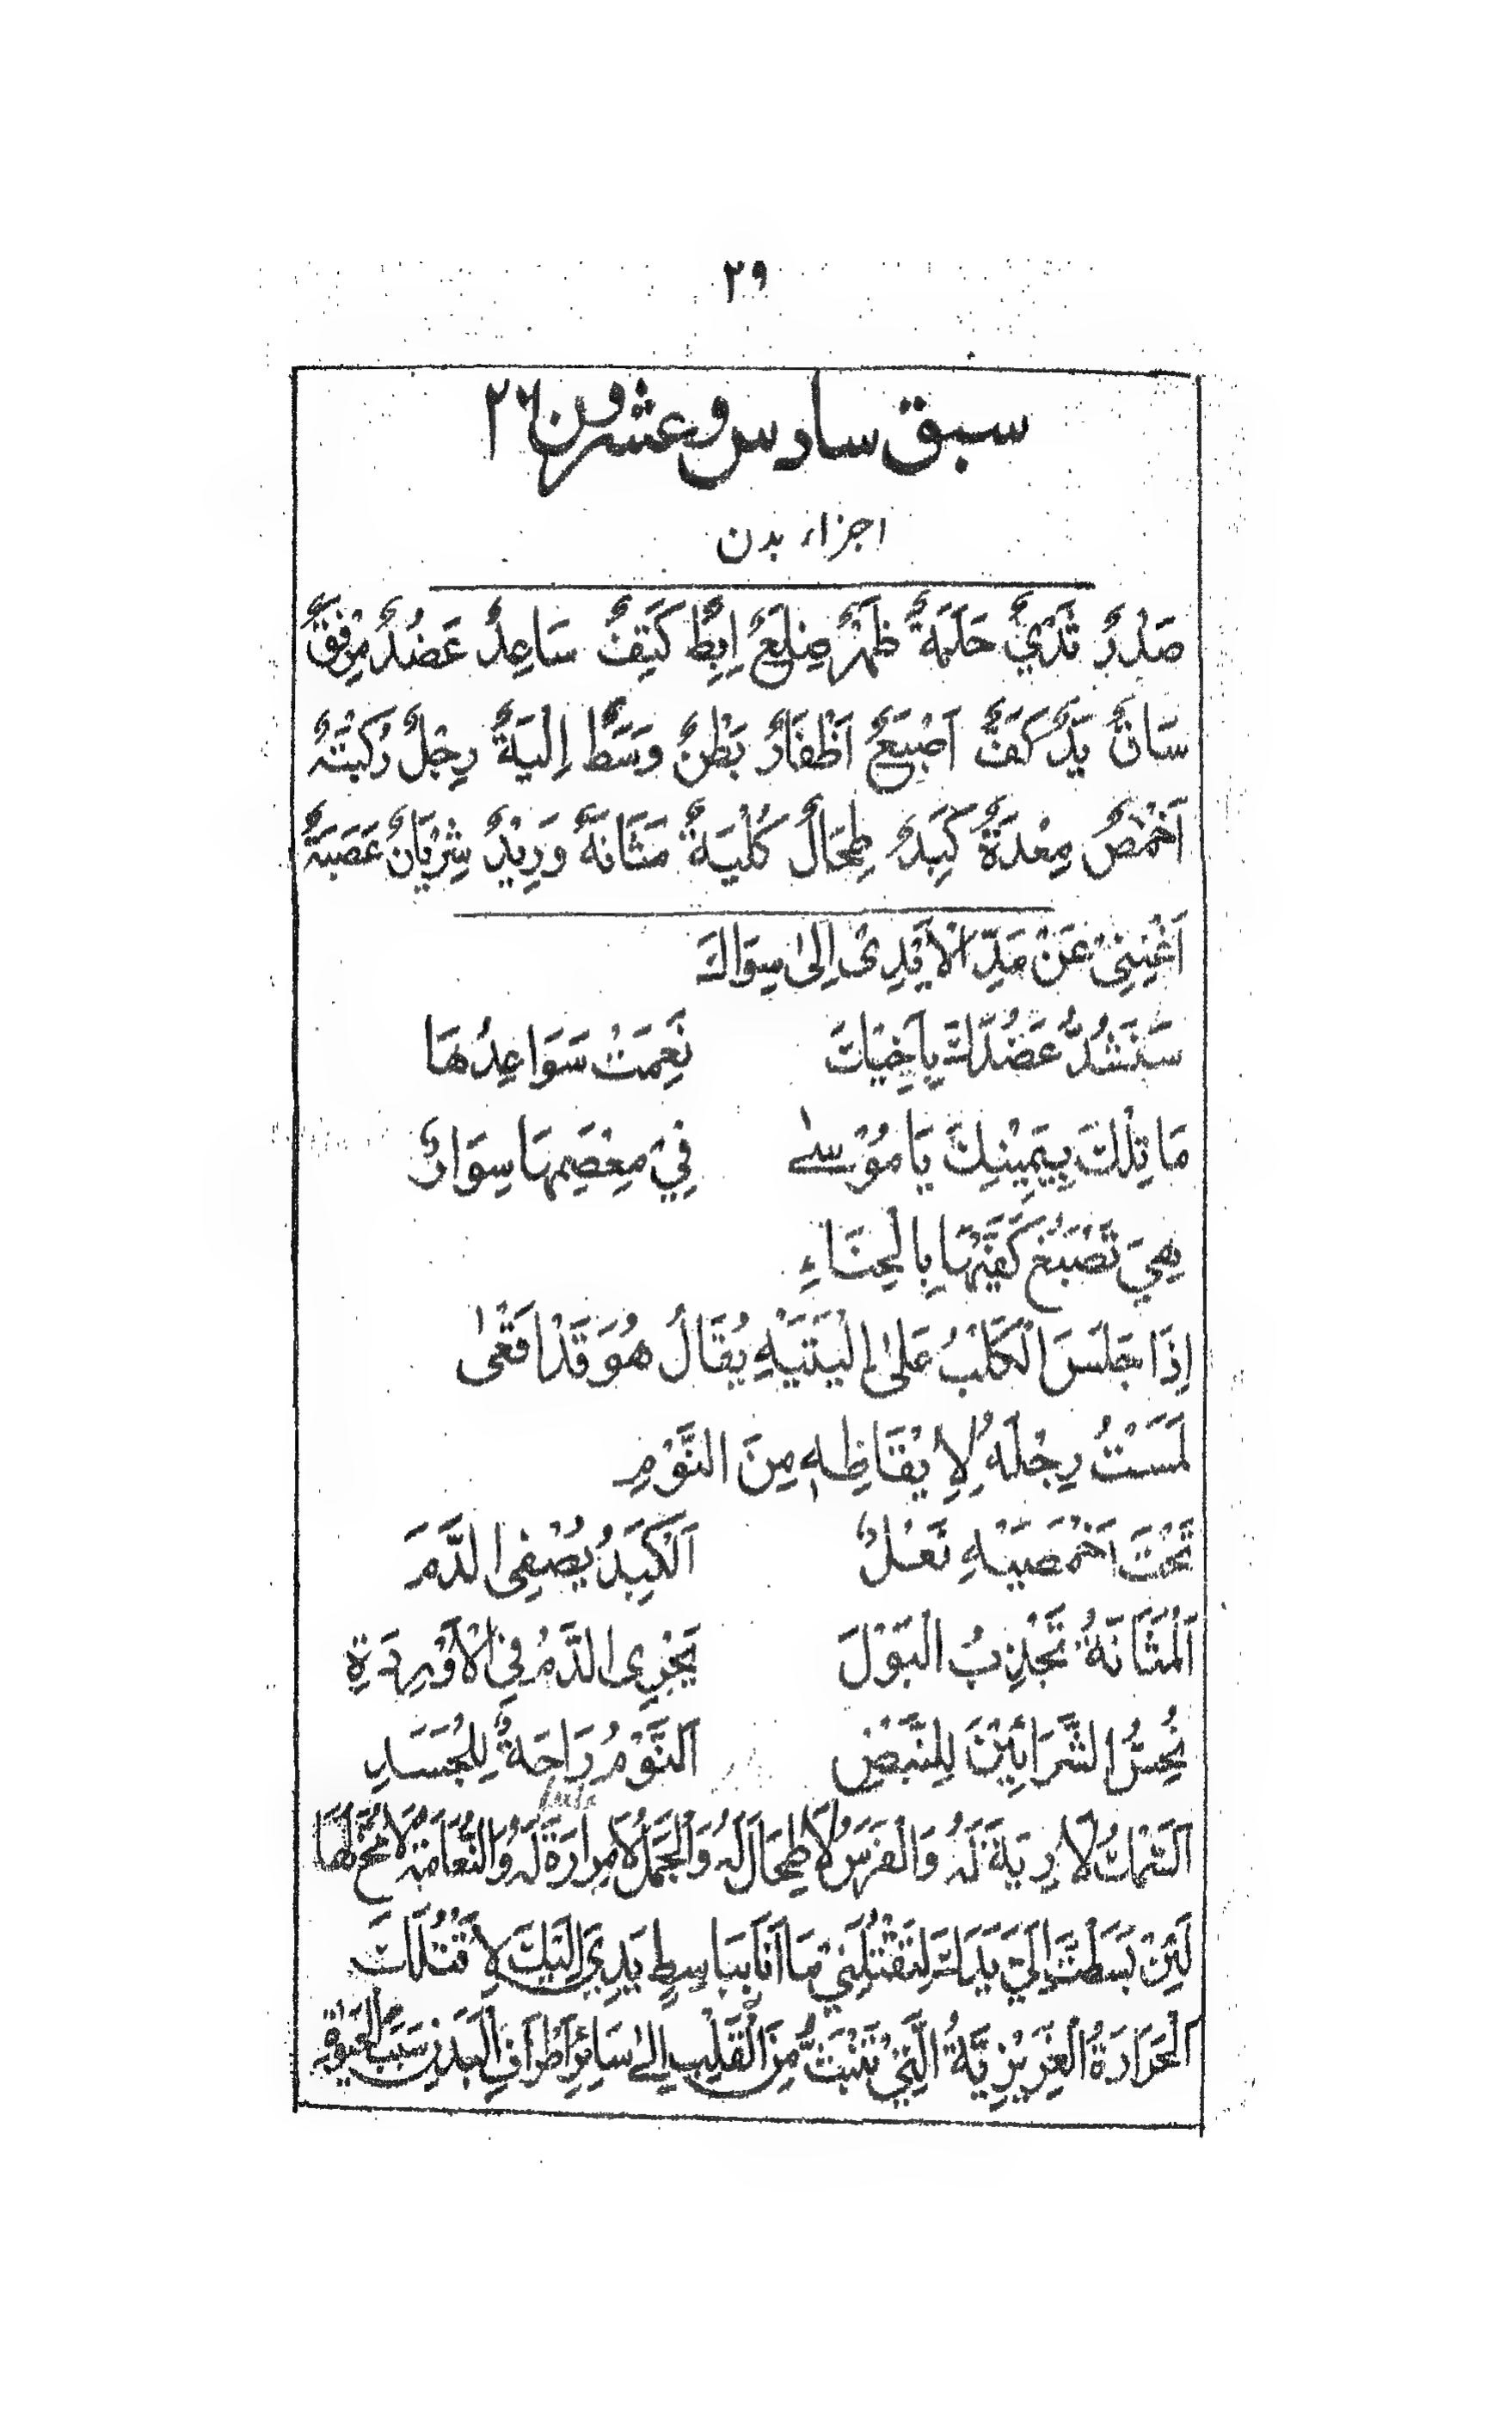 ٢٩
سبق سادس و عشرون ٢٦
اجزاء بدن
صَدْرٌ ثَدْيٌ حَلَمَةٌ ظَهْرٌ ضِلَعٌ اِبِطٌ كَتِفٌ سَاعِدٌ عَضُدٌ مِرْفَقٌ
سَاقٌ يَدٌ كَفٌّ اَصْبَعٌ اَظْفَارٌ بَطْنٌ وَسَطٌ اِلْيَةٌ رِجْلٌ رُكْبَةٌ
اَخْمَصٌ مِعْدَةٌ كَبِدٌ طِحَالٌ كُلْيَةٌ مَثَانَةٌ وَرِيْدٌ شِرْيَانٌ عَصَبَةٌ
اَغْنِنِيْ عَنْ مَدِّ الْاَيْدِيْ اِلٰى سِوَاكَ
سَنَشُدُّ عَضُدَكَ بِاَخِيْكَ نَعِمَتْ سَوَاعِدُهَا
مَا تِلْكَ بِيَمِيْنِكَ يَا مُوْسٰے فِيْ مِعْصَمِهَا سِوَارٌ
هِيَ تَصْبَغُ كَفَّيْهَا بِالْحِنَاءِ
اِذَا جَلَسَ الْكَلْبُ عَلٰى اِلْيَتَيْهِ يُقَالُ هُوَ قَدْ اَقْعٰى
لَمَسْتُ رِجْلَهُ لِاِيْقَاظِهٖ مِنَ النَّوْمِ
تَحْتَ اَخْمَصَيْهِ نَعْلٌ اَلْكَبِدُ يُصْفِي الدَّمَ
اَلْمَثَانَةُ تَجْذِبُ الْبَوْلَ يَجْرِي الدَّمُ فِي الْاَوْرِدَةِ
نُحِسُّ الشَّرَايِيْنَ لِلنَّبْضِ اَلنَّوْمُ رَاحَةٌ لِلْجَسَدِ
اَلسَّمَكُ لَا رِيَةَ لَهُ وَالْفَرَسُ لَا طِحَالَ لَهُ وَالْجَمَلُ لَا مِرَارَةَ لَهُ وَالنَّعَامَةُ لَا مُخَّ لَهَا
لَئِنْ بَسَطْتَ اِلَيَّ يَدَكَ لِتَقْتُلَنِيْ مَا اَنَا بِبَاسِطٍ يَدِيَ اِلَيْكَ لِاَقْتُلَكَ
اَلْحَرَارَةُ الْغَرِيْزِيَّةُ الَّتِيْ تَنْبَثُّ مِنَ الْقَلْبِ اِلٰے سَائِرِ اَطْرَافِ الْبَدَنِ سَبَبُ الْحَيٰوةِ